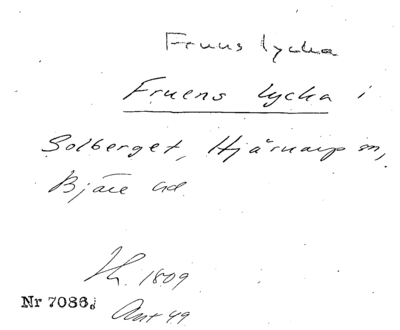 Fruns lycka
Fruens lycka i
Solberget, Hjärnarp sn,
Bjäre hd.
1809
Nr 7086
Ant 49